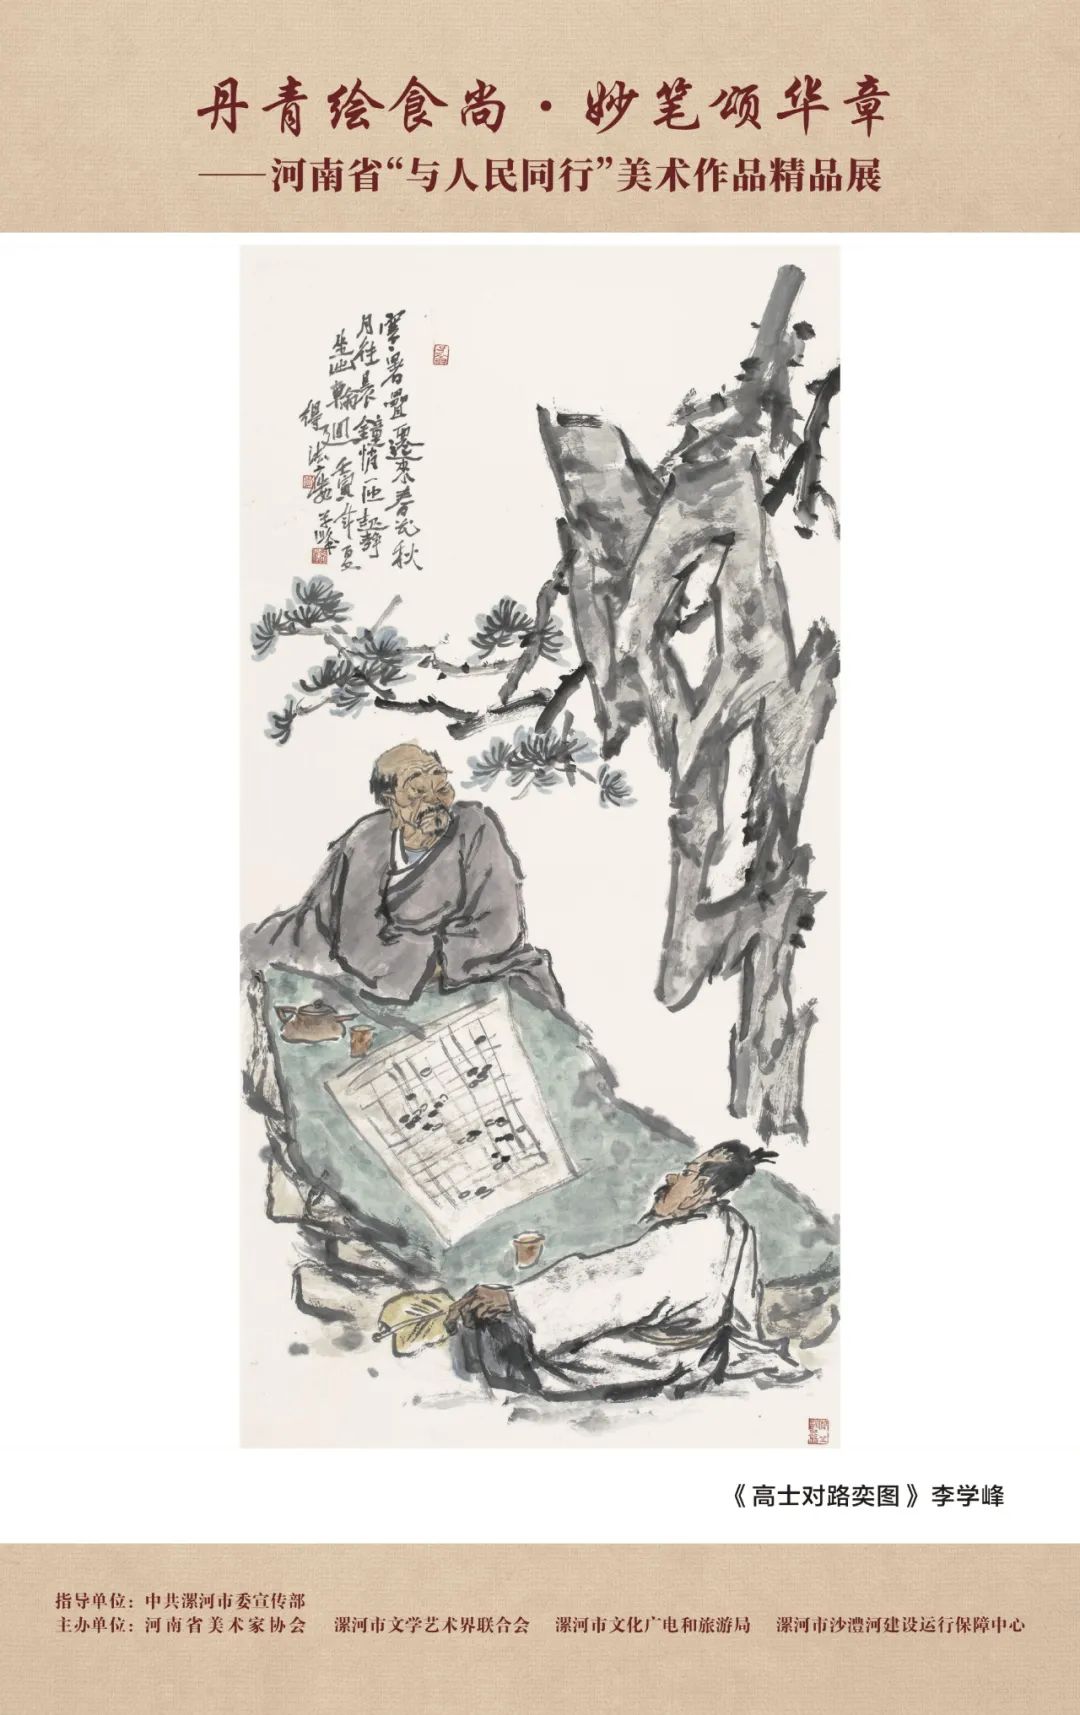 丹青绘食尚·妙笔颂华章
——河南省“与人民同行”美术作品精品展
寒暑叠迁来春沁秋
月往晨钟悄
坐此轮回壬寅年夏
学峰
《高士对路奕图》李学峰
指导单位：中共漯河市委宣传部
主办单位：河南省美术家协会 漯河市文学艺术界联合会 漯河市文化广电和旅游局 漯河市沙澧河建设运行保障中心